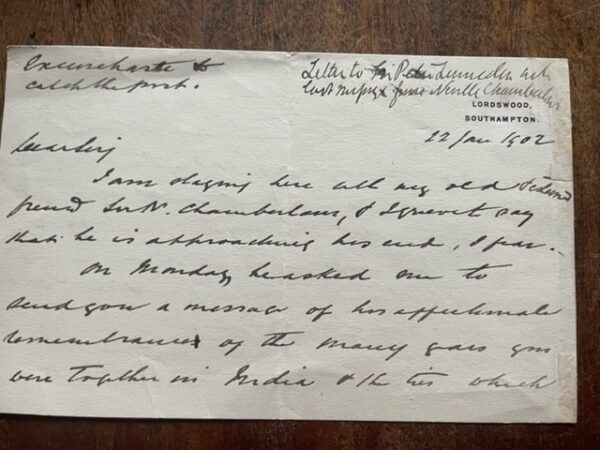 Excuse haste to
catch the post.
Letter to Sir Peter Lumsden with
last message from Neville Chamberlain
LORDSWOOD,
SOUTHAMPTON.
22 Jan 1902
Dear Sir
I am staying here with my old &
friend Sir N. Chamberlain, & I grieve to say
that he is approaching his end, I fear.
On Monday, he asked me to
send you a message of his affectionate
remembrance of the many years you
were together in India & the ties which